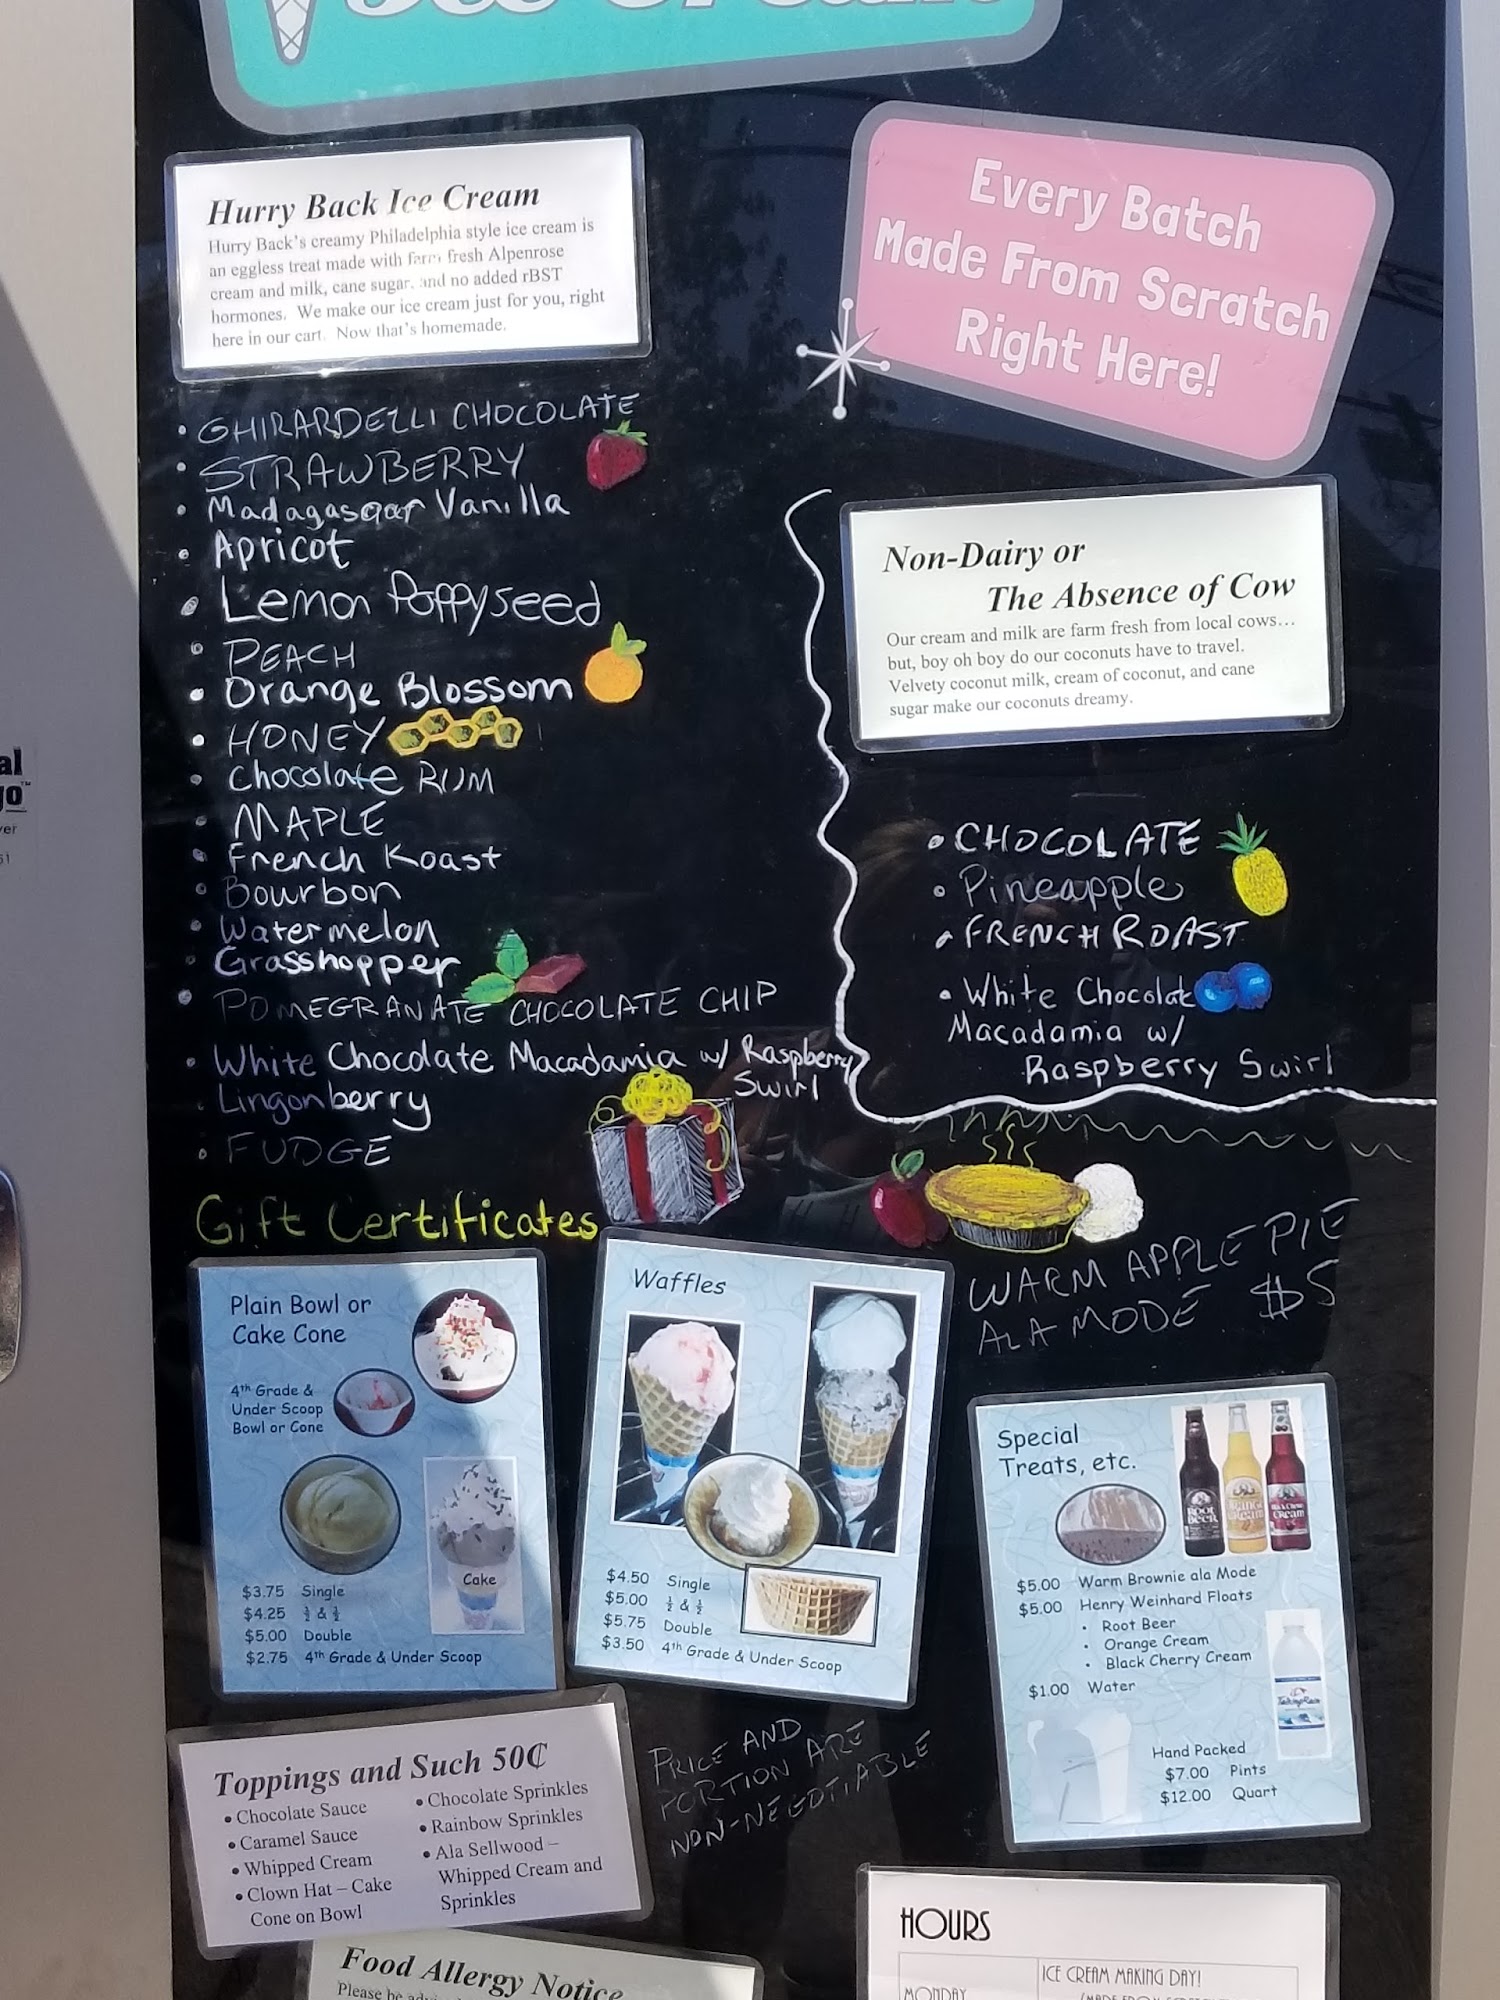 Ice Cream
Hurry Back Ice Cream
Hurry Back's creamy Philadelphia style ice cream is
an eggless treat made with farm fresh Alpenrose
cream and milk, cane sugar, and no added rBST
hormones. We make our ice cream just for you, right
here in our cart. Now that's homemade.
Every Batch
Made From Scratch
Right Here!
• GHIRARDELLI CHOCOLATE
• STRAWBERRY
• Madagascar Vanilla
• Apricot
• Lemon Poppyseed
• PEACH
• Orange Blossom
• HONEY
• Chocolate RUM
• MAPLE
• French Roast
• Bourbon
• Watermelon
• Grasshopper
• POMEGRANATE CHOCOLATE CHIP
• White Chocolate Macadamia w/ Raspberry
Swirl
• Lingonberry
• FUDGE
Non-Dairy or
The Absence of Cow
Our cream and milk are farm fresh from local cows…
but, boy oh boy do our coconuts have to travel.
Velvety coconut milk, cream of coconut, and cane
sugar make our coconuts dreamy.
• CHOCOLATE
• Pineapple
• FRENCH ROAST
• White Chocolate
Macadamia w/
Raspberry Swirl
Gift Certificates
WARM APPLE PIE
ALA MODE $5
Plain Bowl or
Cake Cone
4th Grade &
Under Scoop
Bowl or Cone
Cake
$3.75 Single
$4.25 ½ & ½
$5.00 Double
$2.75 4th Grade & Under Scoop
Waffles
$4.50 Single
$5.00 ½ & ½
$5.75 Double
$3.50 4th Grade & Under Scoop
Special
Treats, etc.
ROOT
BEER
Orange
Cream
Black Cherry
CREAM
$5.00 Warm Brownie ala Mode
$5.00 Henry Weinhard Floats
• Root Beer
• Orange Cream
• Black Cherry Cream
$1.00 Water
Talking Rain
Hand Packed
$7.00 Pints
$12.00 Quart
Toppings and Such 50₵
• Chocolate Sauce
• Caramel Sauce
• Whipped Cream
• Clown Hat – Cake
Cone on Bowl
• Chocolate Sprinkles
• Rainbow Sprinkles
• Ala Sellwood –
Whipped Cream and
Sprinkles
PRICE AND
PORTION ARE
NON-NEGOTIABLE
Food Allergy Notice
Please be
HOURS
MONDAY
ICE CREAM MAKING DAY!
al
go™
ver
51